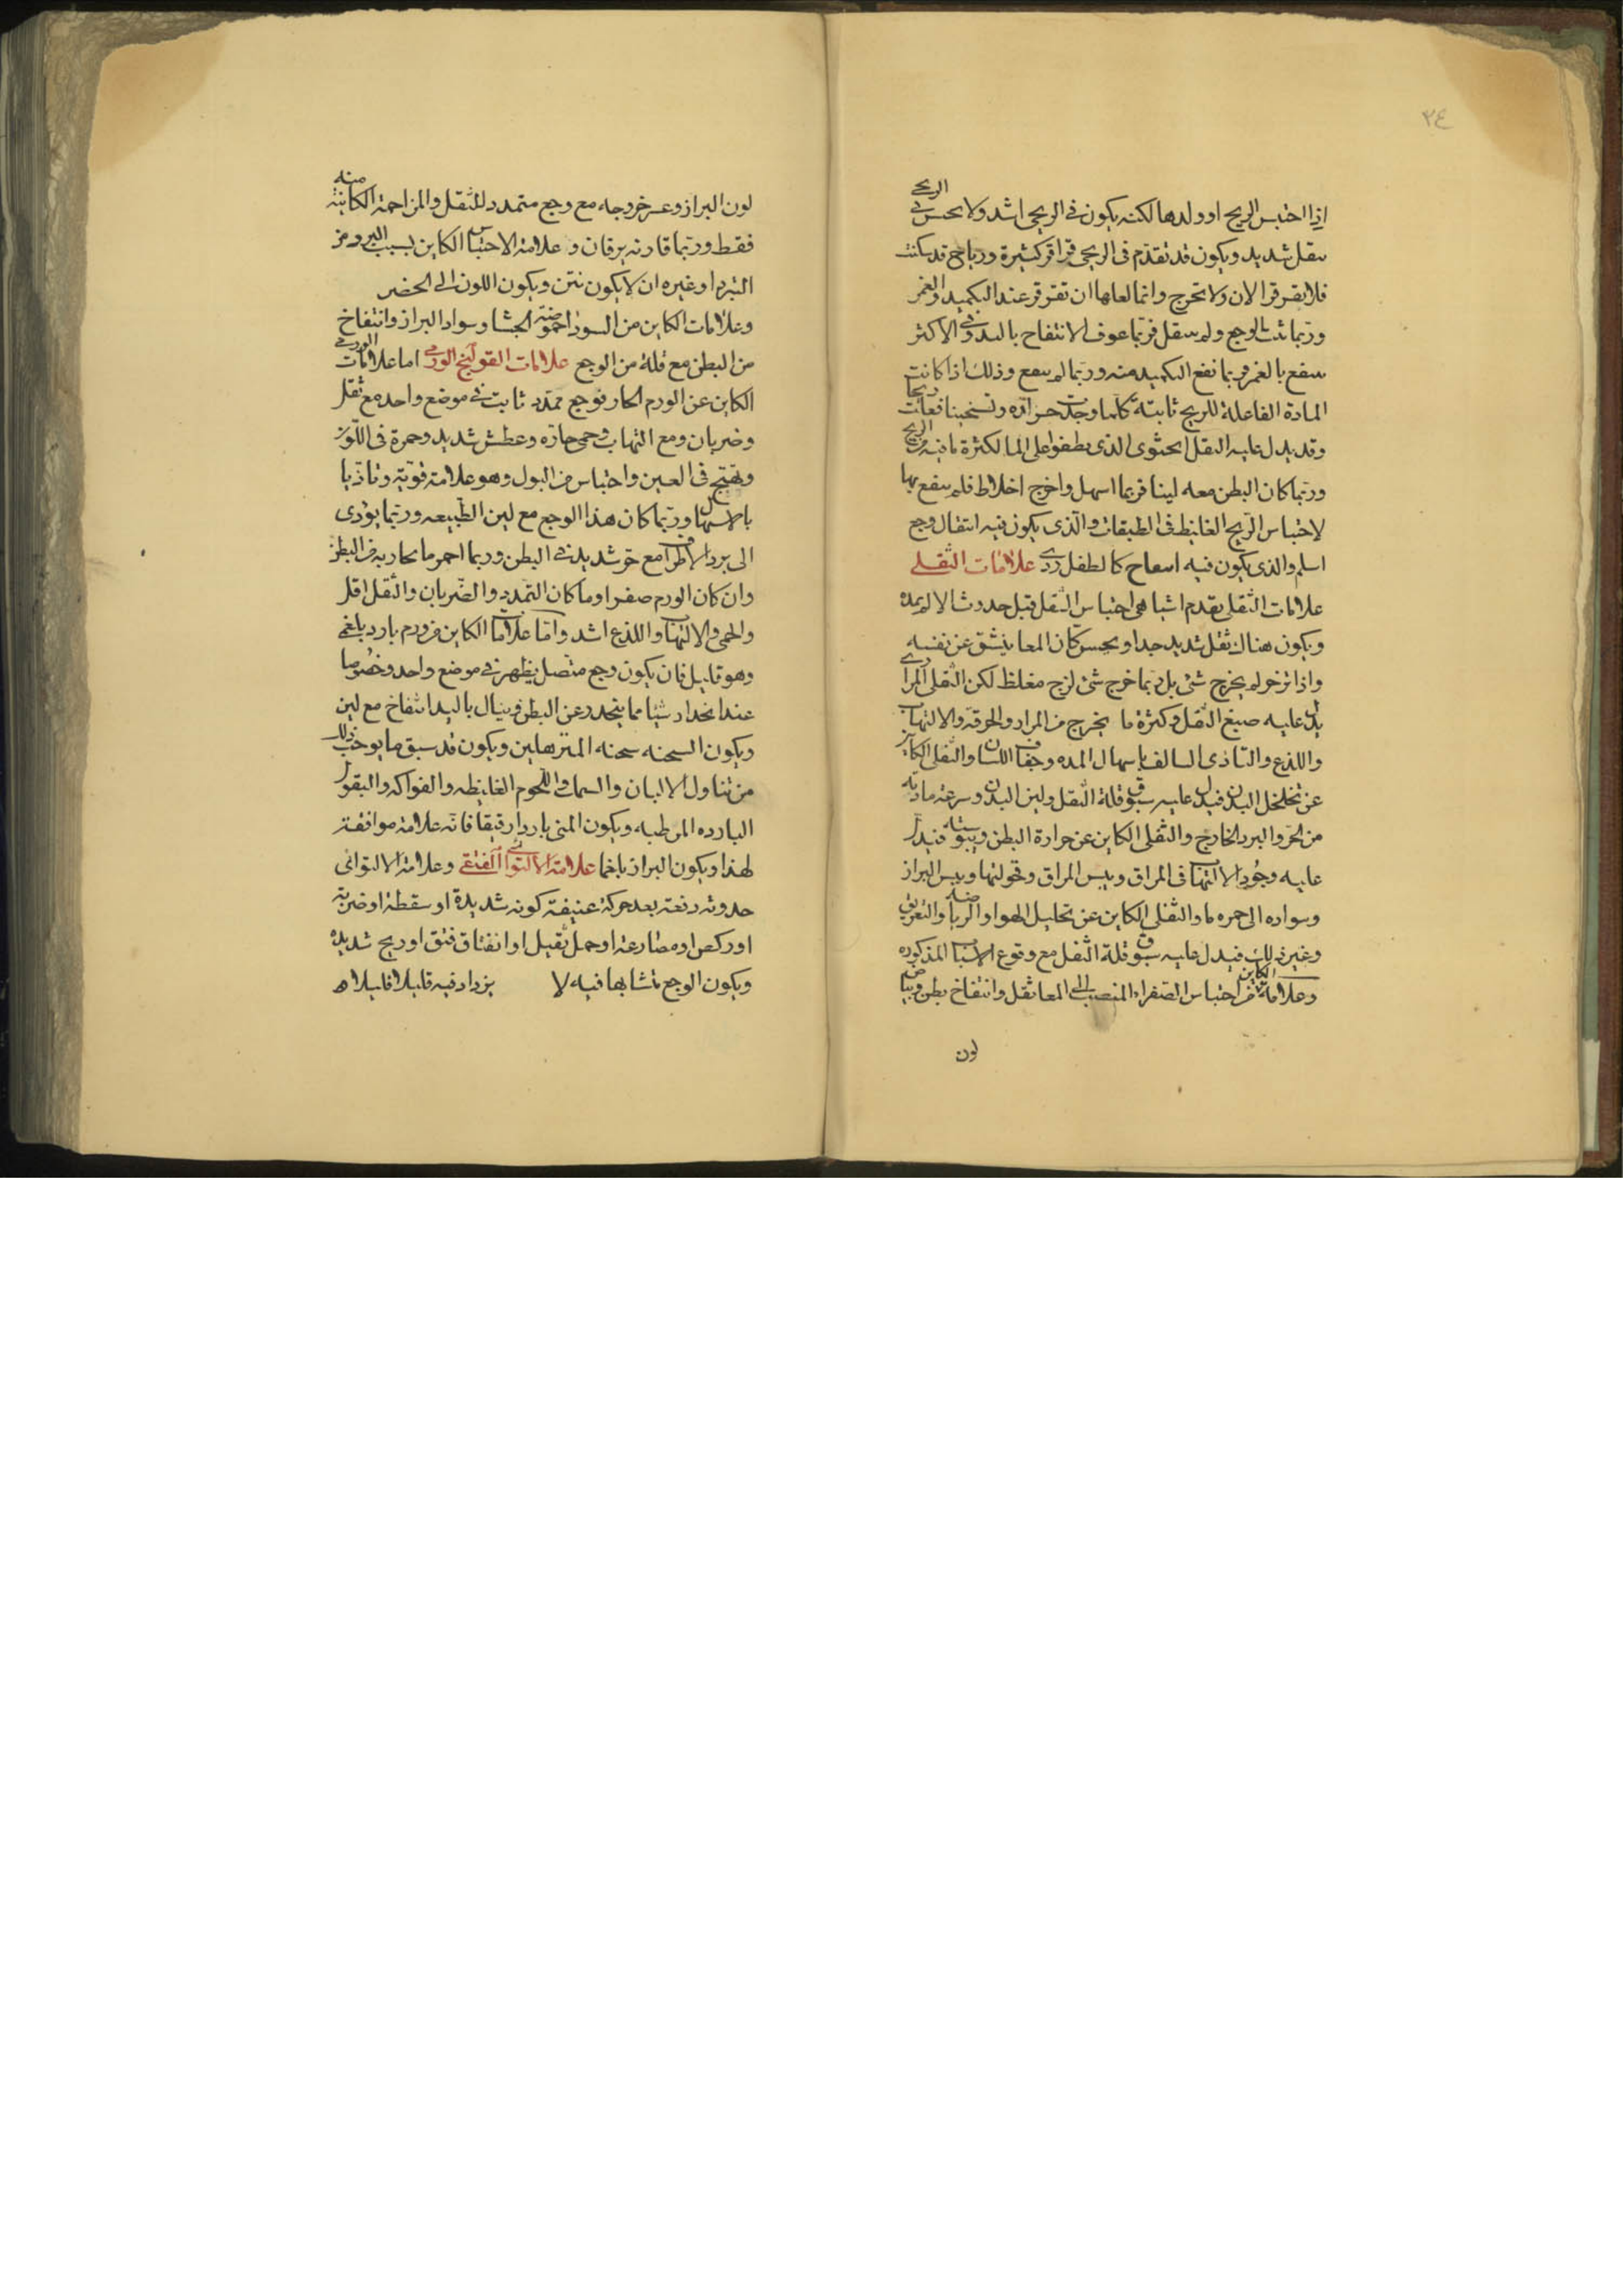 ٢٤
اذا احتبس الريح او ولدها لكنه يكون فى الريحى اشد ولا يحس فى الريحى
بثقل شديد ويكون قد تقدم فى الريحى قراقر كثيرة ورياح قد سكنت
فلا يقرقر الان ولا تخرج وانما لعلها ان تقرقر عند التكميد والغمز
وربما ثبت الوجع ولم ينتقل فربما عوف الانتفاح باليد وفى الاكثر
ينتفع بالغمز وربما نفع التكميد منه وربما لم ينفع وذلك اذا كانت
المادة الفاعلة للريح ثابتة كلما وجدت حرارة وتسخينا فعلت ريحا
وقد يدل عليه الثقل الحثوى الذى يطفوا على الما لكثرة ما فيه من الريح
وربما كان البطن معه لينا فربما اسهل واخرج اخلاط فلم ينفع بها
لاحتباس الريح الغليظ فى الطبقات والذى يكون فيه انتقال وجع
اسلم والذى يكون فيه كالطفل ردى علامات الثقلى
علامات الثقلى تقدم اشيا هى احتباس الثقل قبل حدوث الالم بمده
ويكون هناك ثقل شديد جدا ويحس كان المعا ينشق عن نفسه
واذا تزحر لم يخرج شئ بل ربما خرج شئ لزج مغلظ لكن الثقلى المرارى
يدل عليه صبغ الثقل وكثرة ما يخرج من المرار والحرقة والالتهاب
واللذع والتاذى السالف باسهال المده وجفاف اللسان والثقلى الكاين
عن تخلخل البدن فيدل عليه سبوق قلة الثقل ولين البدن وسرعة ماديه
من الحر والبرد الخارج والثقلى الكاين عن حرارة البطن ويبوسته فيدل
عليه وجود الالتهاب فى المراق ويبس المراق وقحولتها ويبس البراز
وسواده الى حمره ما والثقلى الكاين عن تحليل الهوا والرياضه والتعريق
وغير ذلك فيدل عليه سبوق قلة الثقل مع وقوع الاسباب المذكوره
وعلامة الكاين من احتباس الصفراء المنصب الى المعا ثقل وانتفاخ بطن وبياض
لون
لون البراز وعسر خروجه مع وجع متمدد للثقل والمزاحمة الكاينة منه
فقط وربما قارنه يرقان وعلامة الاحتباس الكاين بسبب البرد من
التبرد او غيره ان لا يكون نتن ويكون اللون الى الخضر
وعلامات الكاين من السودا حموضة الجشا وسواد البراز وانتفاخ
من البطن مع قلة من الوجع علامات القولنج الورمى اما علامات الورمى
الكاين عن الورم الحار فوجع ممتدد ثابت فى موضع واحد مع ثقل
وضربان ومع التهاب وحمى حاره وعطش شديد وحمرة فى اللون
وتهيج فى العين واحتباس من البول وهو علامة قوية وتاذيا
بالاسهال وربما كان هذا الوجع مع لين الطبيعه وربما يؤدى
الى برد الاطراف مع حر شديد فى البطن وربما احمر ما يحاذيه من البطن
وان كان الورم صفراوما كان التمدد والضربان والثقل اقل
والحمى والالتهاب واللذع اشد واما علامات الكاين من ورم بارد بلغمى
وهو قليل فان يكون وجع متصل يظهر فى موضع واحد وخصوصا
عند انحدار شيئا مما ينحدر عن البطن وينال باليد انتفاخ مع لين
ويكون السحنه سحنه المترهلين ويكون قد سبق ما يوجب ذلك
من تناول الالبان والسمك واللحوم الغليظه والفواكه والبقول
البارده المرطبه ويكون المنى باردا رقيقا فانه علامة موافقة
لهذا ويكون البراز بلغما علامة الالتوائى الفتقى وعلامة الالتوائى
حدوثه دفعة بعد حركة عنيفة كونه شديدة او سقطة او ضربة
او ركض او مصارعة او حمل ثقيل او انفتاق فتق او ريح شديده
ويكون الوجع متشابها فيه لا يزداد فيه قليلا قليلا